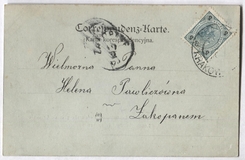 Correspondenz-Karte.
Karta korespondencyjna.
Wielmożna Panna
Helena Pawliczówna
Zakopanem
KRAKÓW